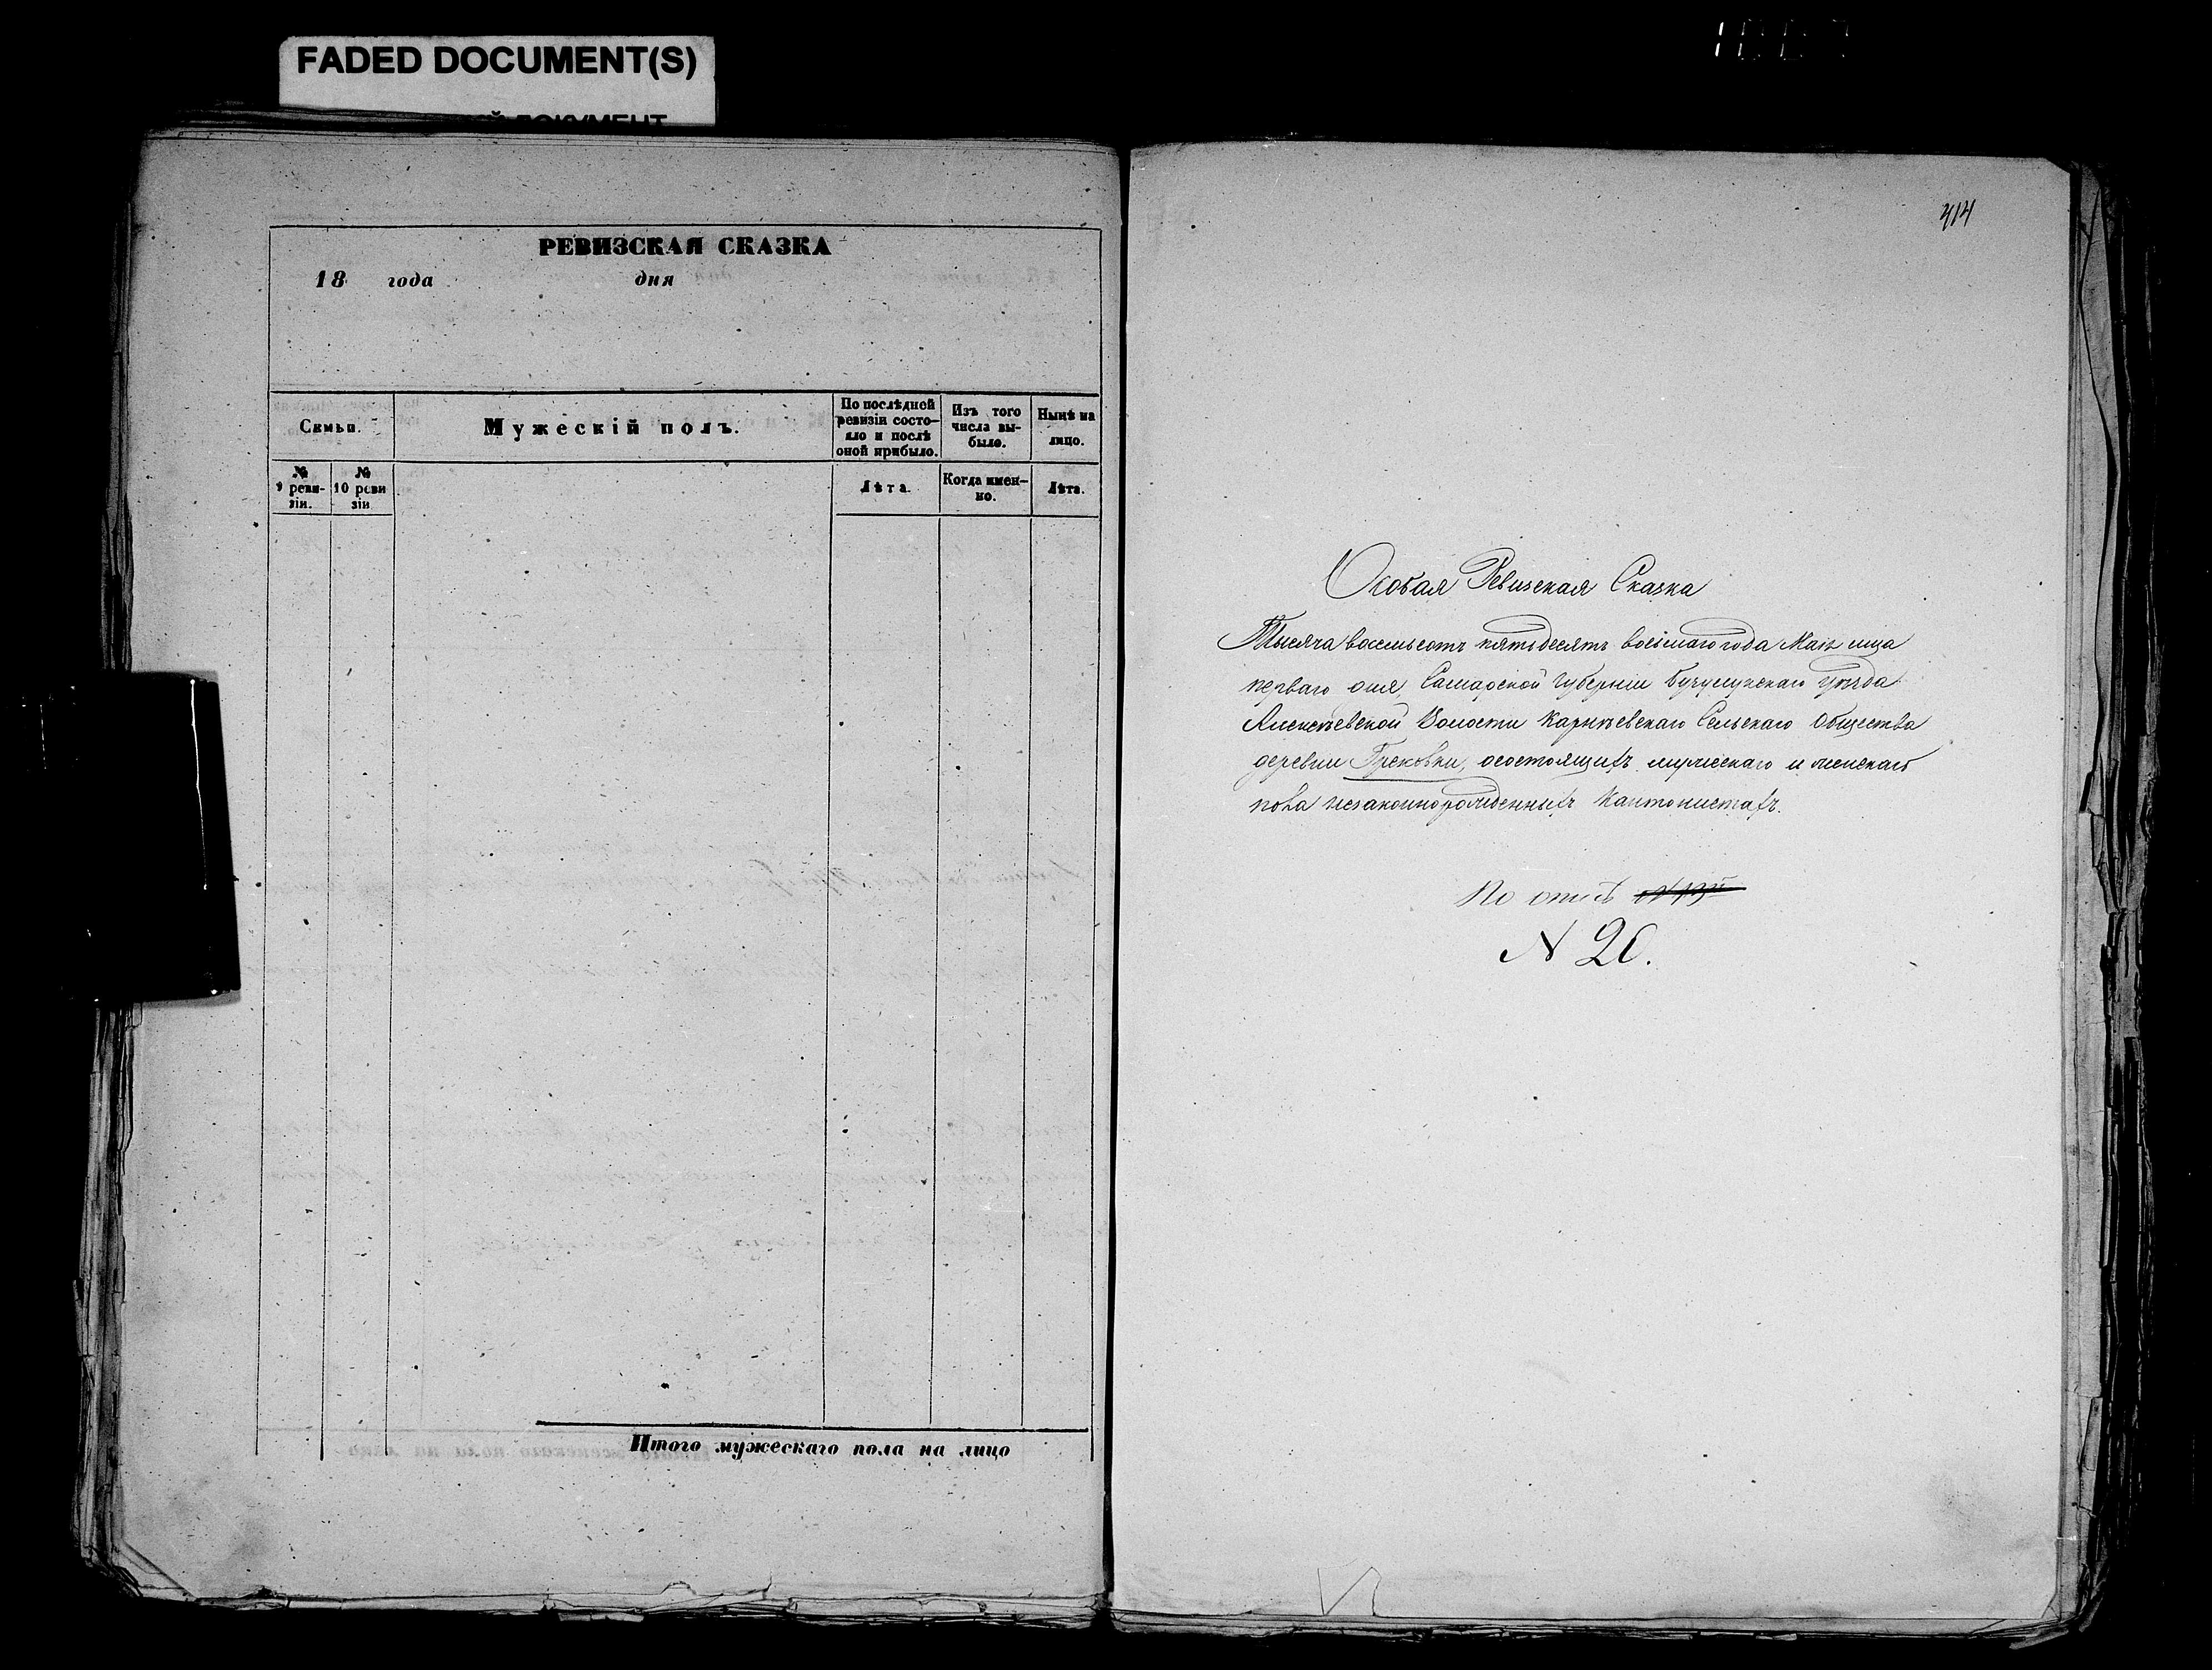 FADED DOCUMENT(S)
РЕВИЗСКАЯ СКАЗКА
18 года дня
Семьи.
Мужескій полъ.
По послѣдней
ревизіи состо-
яло и послѣ
оной прибыло.
Изъ того
числа вы-
было.
Нынѣ на
лицо.
№
9 реви-
зіи.
№
10 реви
зіи
Лѣта.
Когда имен-
но.
Лѣта.
Итого мужескаго пола на лицо
414
Особая Ревизская Сказка
Тысяча восемьсотъ пятьдесятъ восьмаго года Маія мца
перваго дня, Самарской Губерніи Бузулукскаго Уѣзда
Алексѣевской Волости Сельскаго Общества
деревни Грековки, осостоящихъ мужескаго и женскаго
пола незаконнорожденныхъ Кантонистахъ.
По описѣ
N 20.